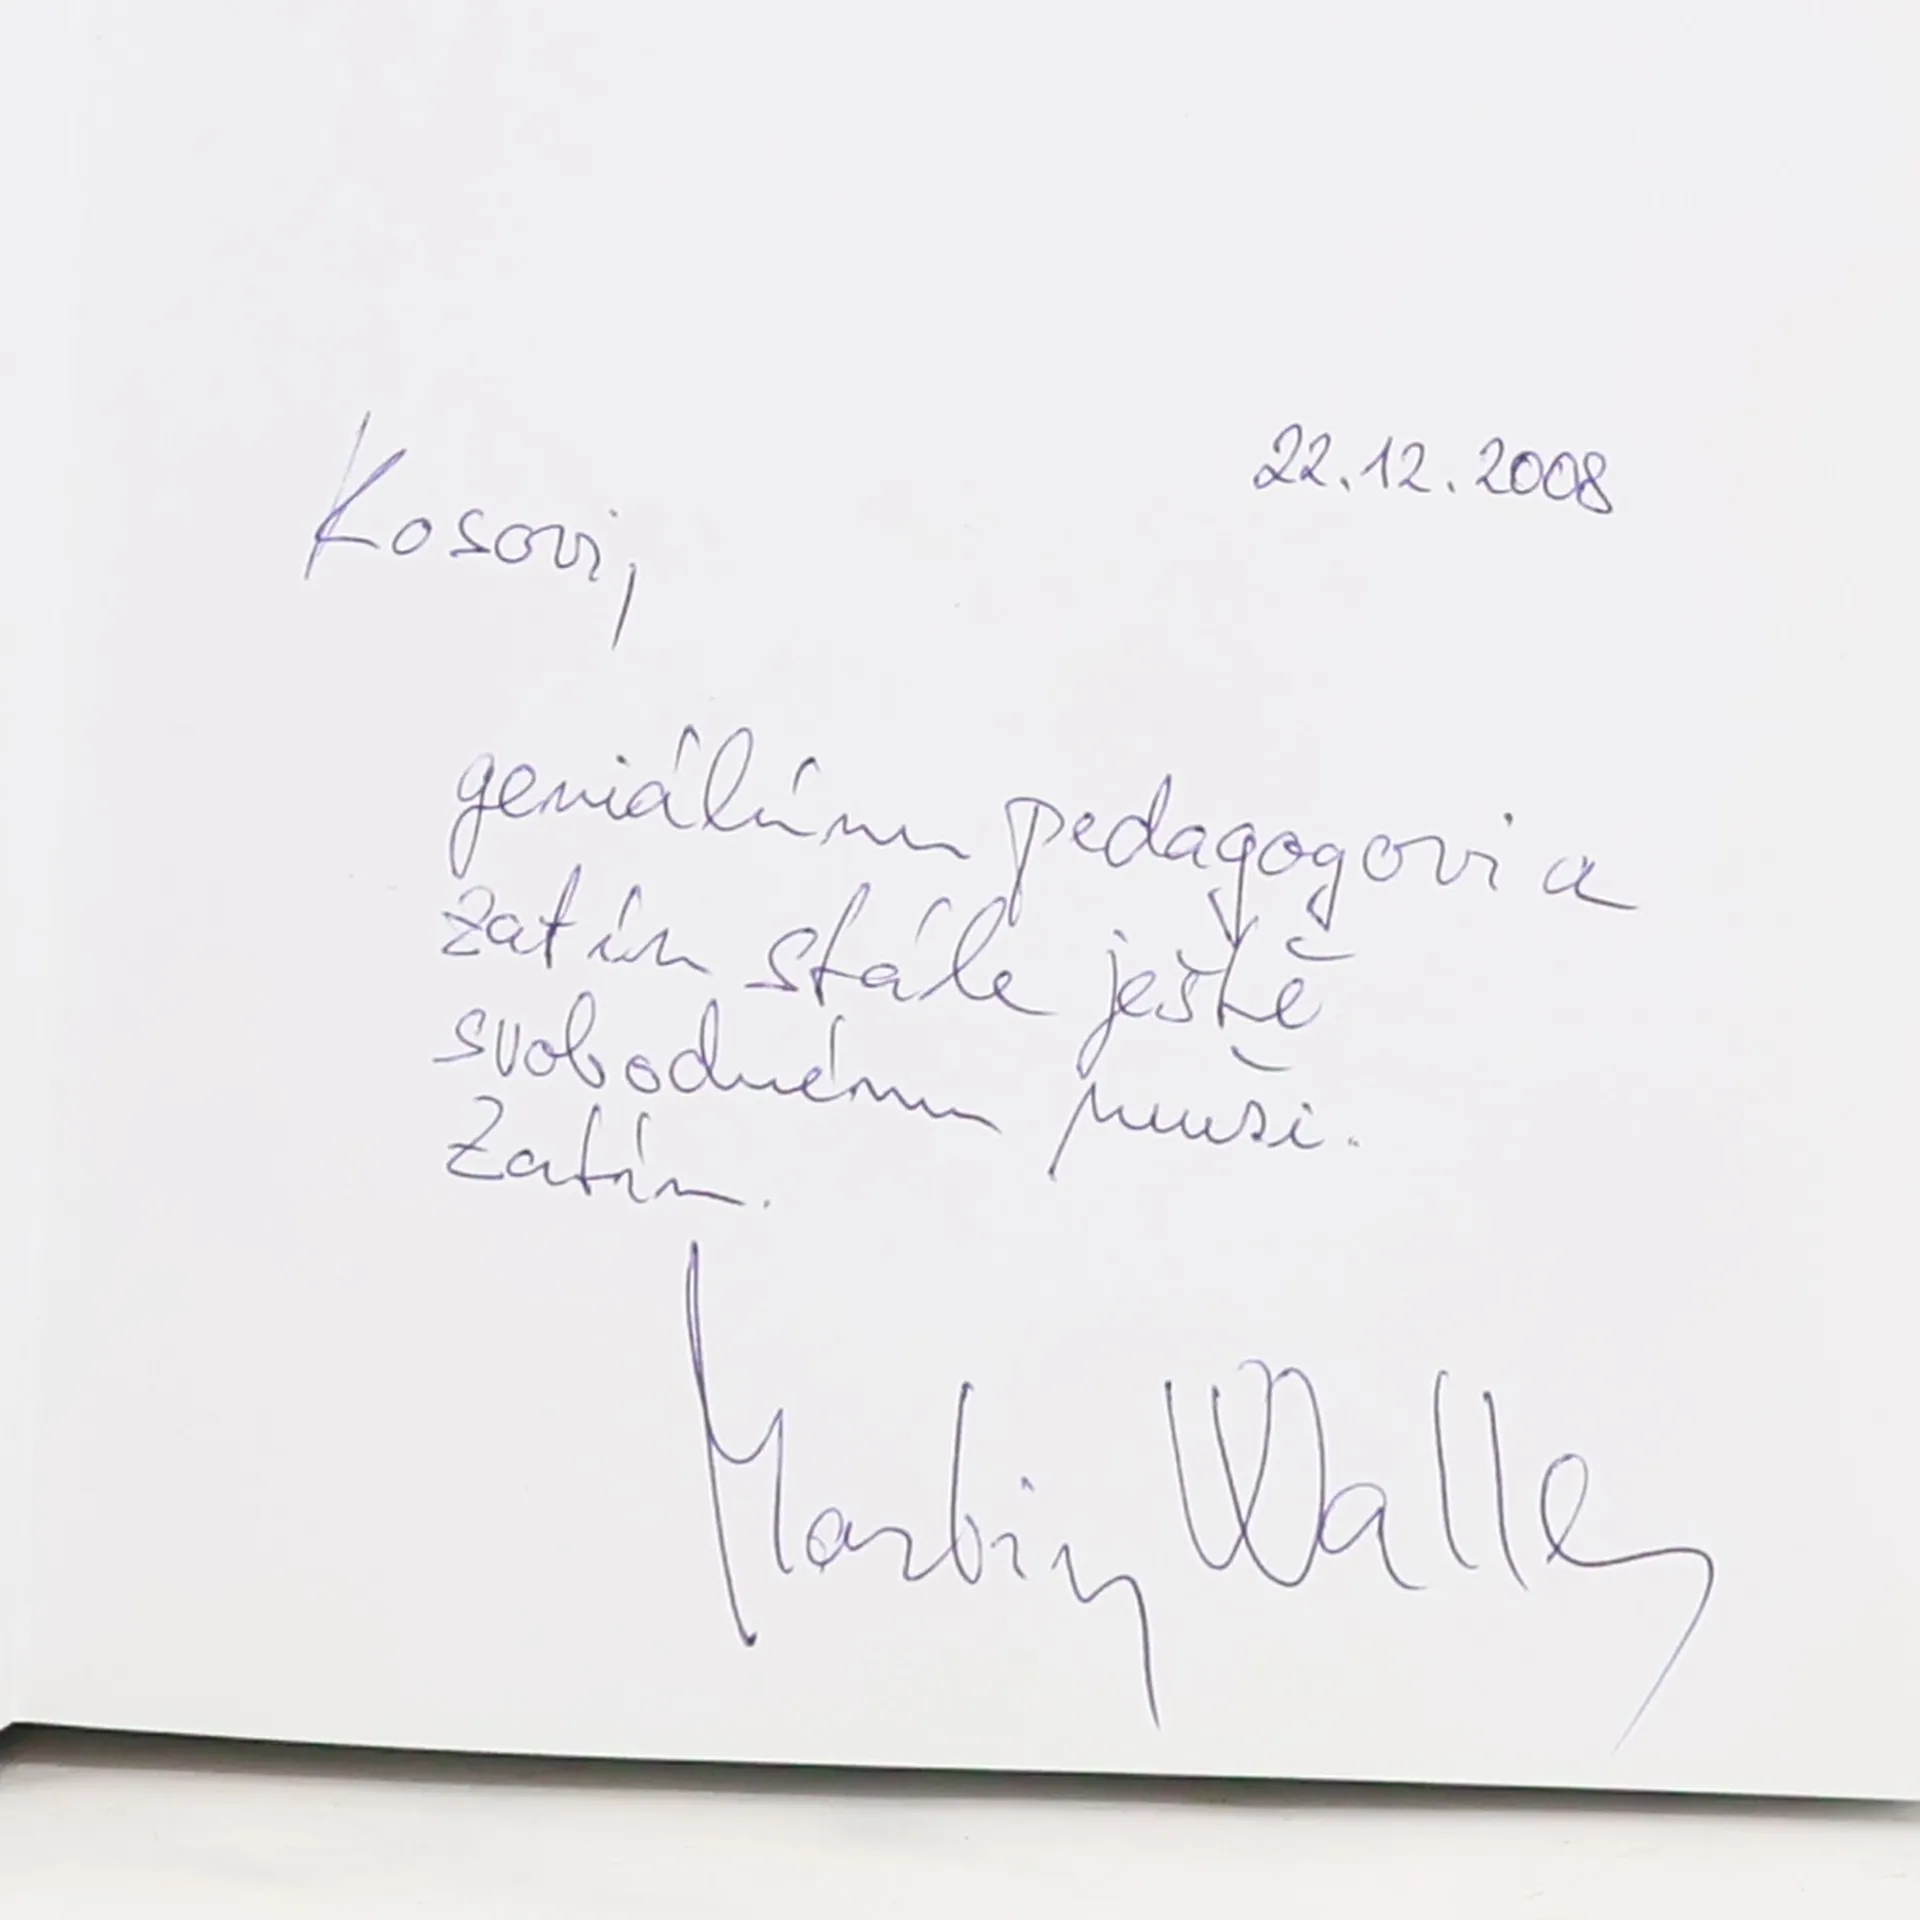 22.12.2008
Kosovi,
geniálnímu pedagogovi a
zatím stále ještě
svobodnému muži.
Zatím.
Martin Waller